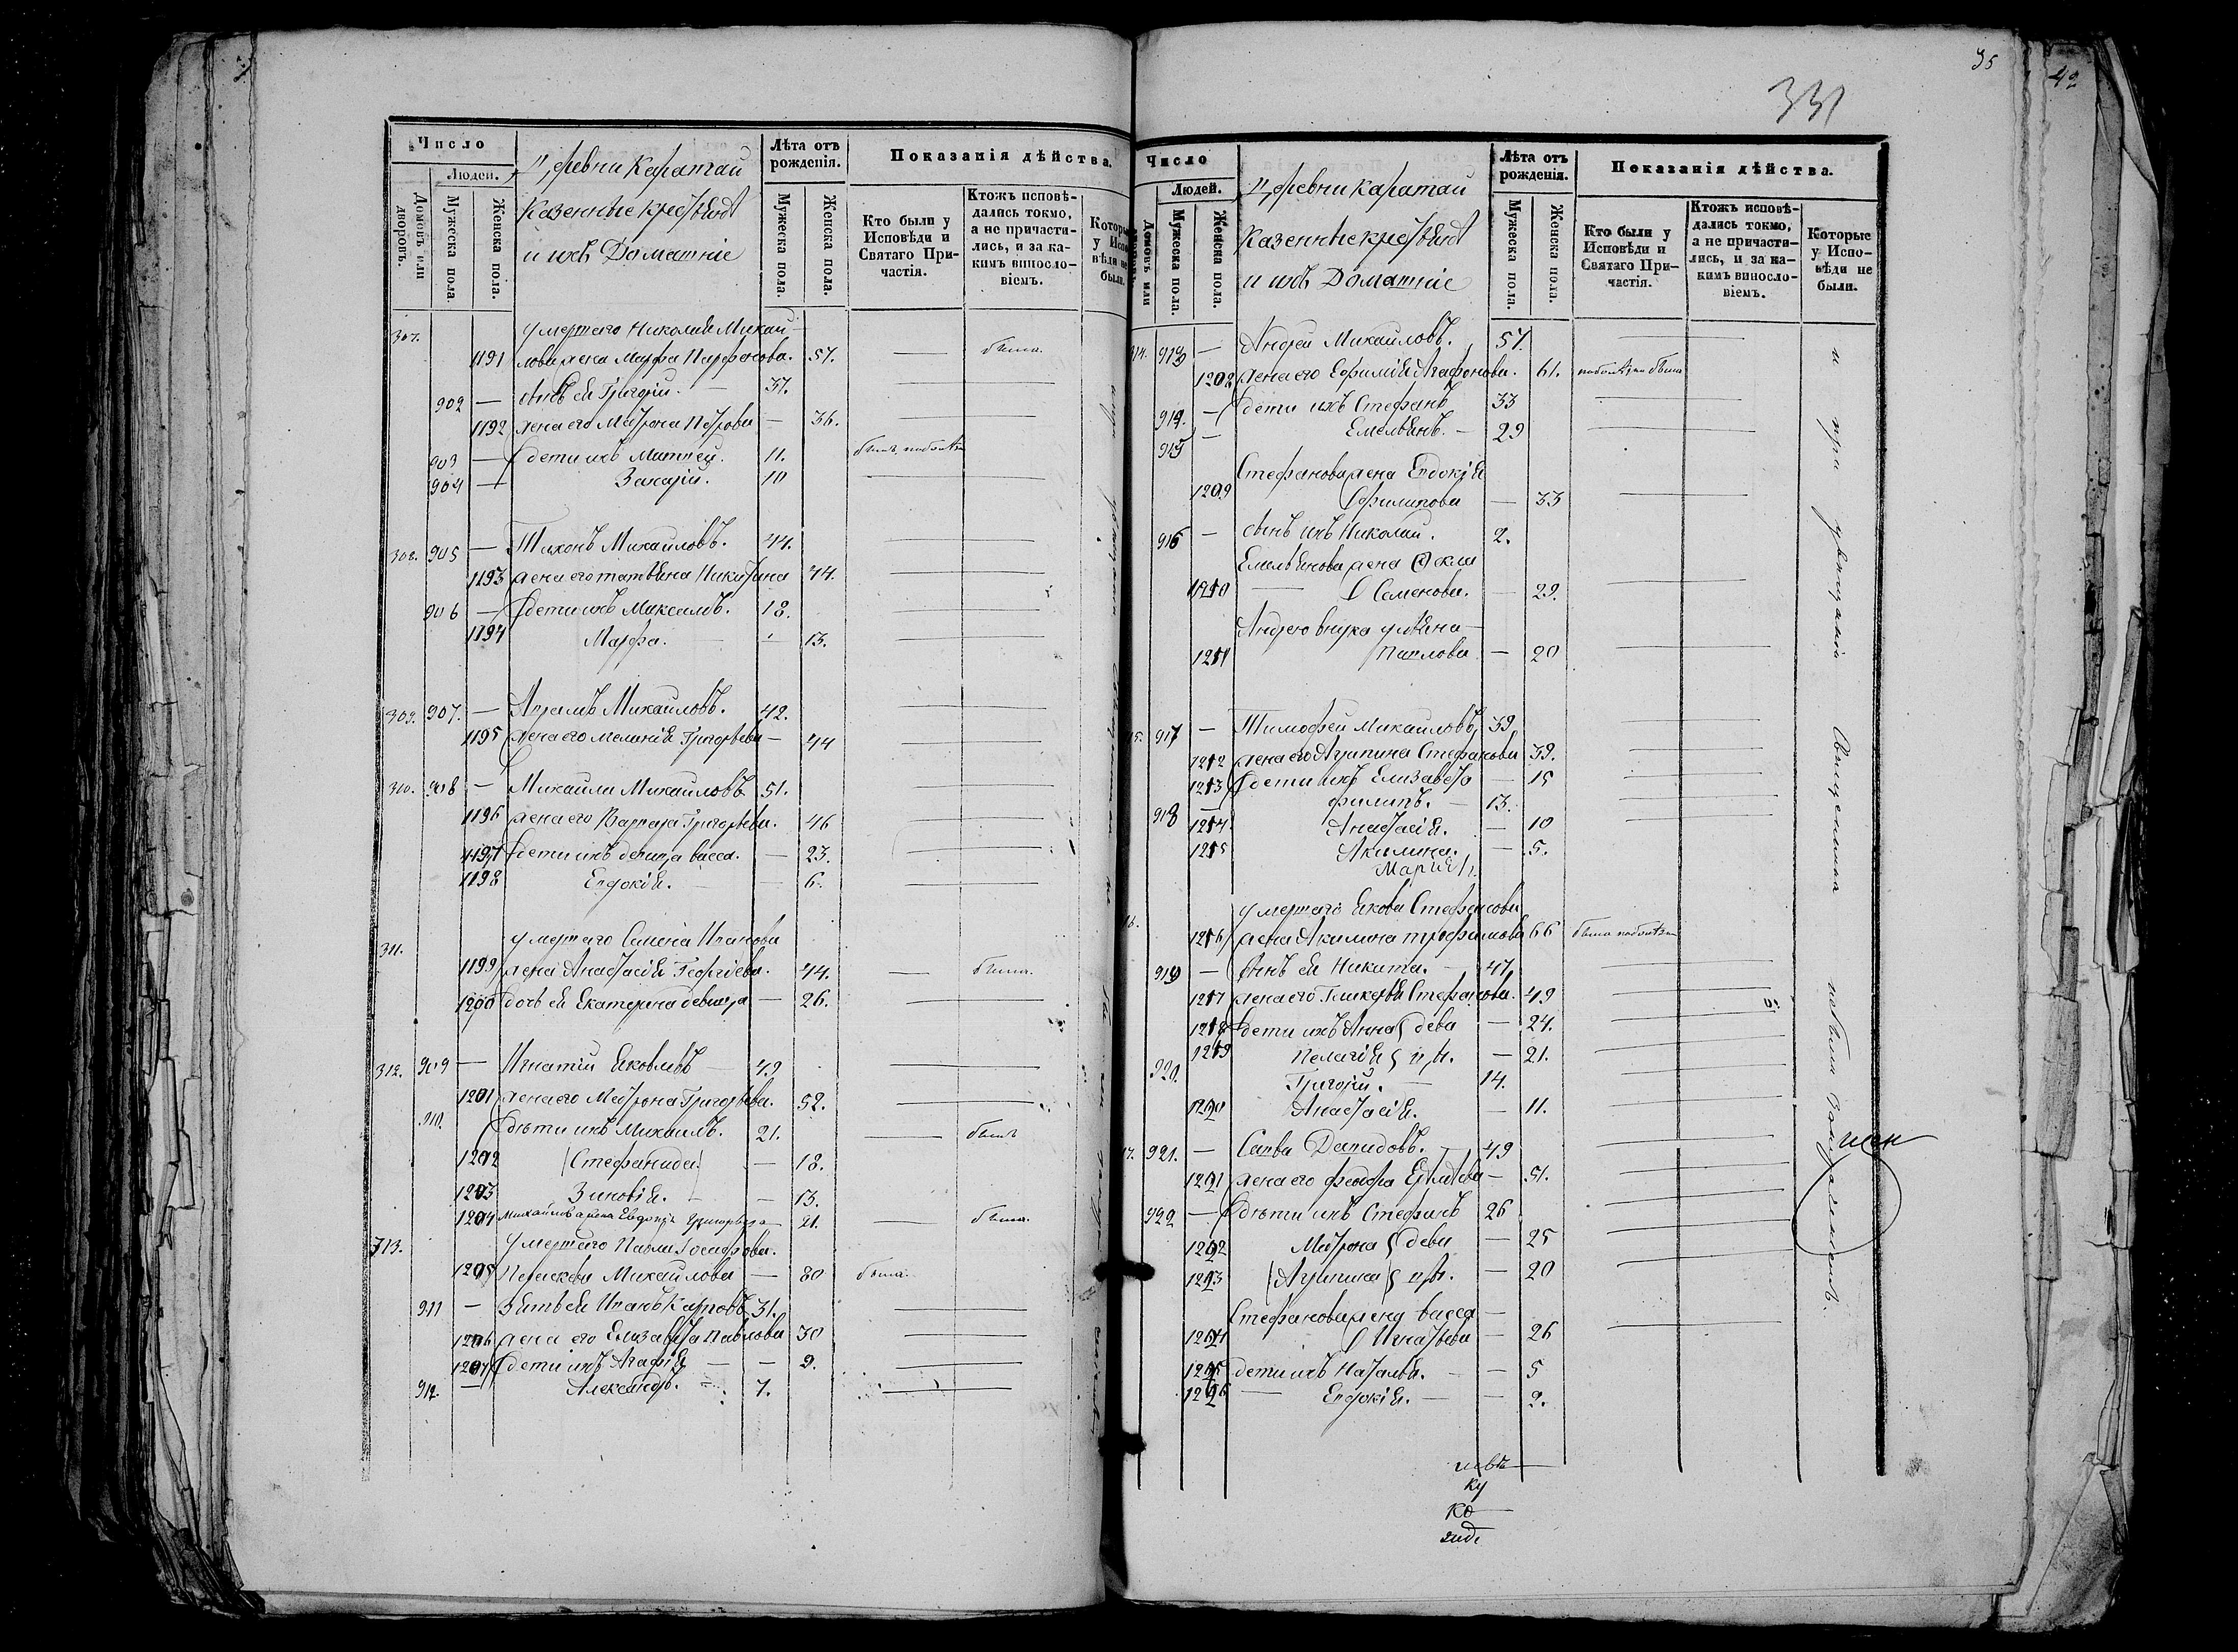 35
42
331
Число
Людей.
Домовъ или дворовъ.
Мужеска пола.
Женска пола.
Деревни Каратаи
Казенные крестьяне
и ихъ Домашніе
Лѣта отъ рожденія.
Мужеска пола.
Женска пола.
Показанія дѣйства.
Кто были у Исповѣди и Святаго Причастія.
Ктожъ исповѣдались токмо, а не причастились, и за какимъ винословіемъ.
Которые у Исповѣди не были.
307. умершаго Николая Михай
1191 лова жена Марфа Парфенова. 57. — была.
902 — сынъ ея Григорій. — 37.
1192 жена его Матрона Петрова — 36.
903 — дети ихъ Матвей. 11.
904 — Захарій. 10
308. 905 — Тихонъ Михайловъ. 44.
1193 жена его татьяна Никитина 44.
906 — дети ихъ Максимъ. 18.
1194 Марфа. — 13.
309. 907. — Аврамъ Михайловъ. 42.
1195 жена его меланія Григорьева — 44
310. 908 — Михаила Михайловъ 51.
1196 жена его Варвара Григорьева. 46
1197 дети ихъ девица васса. — 23.
1198 Евдокія. — 6.
311. умершаго Симена Иванова
1199 жена Анастасія Георгіева. 44. — была.
1200 дочь ея Екатерина девица — 26.
312. 909 — Игнатій Яковлевъ — 49
1201 жена его Матрона Григорьева. 52.
910. дѣти ихъ Михаилъ. 21. — былъ
1202 Стефанида. — 18.
1203 Зиновія. — 13.
1204 Михайлова жена Евдокія Григорьева — 21. — была.
313. умершаго Павла Іосифова.
1205 Параскева Михайлова — 80 была.
911 — Зять ея Иванъ Карповъ 31.
1206 жена его Елизавета Павлова 30
1207 дети ихъ Агафія — — 9.
912. — Александръ. — 7.
Число
Людей.
Домовъ или
Мужеска пола.
Женска пола.
Деревни Каратаи
Казенные крестьяне
и ихъ Домашніе
Лѣта отъ рожденія.
Мужеска пола.
Женска пола.
Показанія дѣйства.
Кто были у Исповѣди и Святаго Причастія.
Ктожъ исповѣдались токмо, а не причастились, и за какимъ винословіемъ.
Которые у Исповѣди не были.
314. 913 — Андрей Михайловъ. 57.
1208 жена его Ефимія Агафонова. 61.
914. — дети ихъ Стефанъ 33
915 — Емельянъ. — 29
Стефанова жена Евдокія
1209 Филипова — 33
916 — сынъ ихъ Николай. 2.
Емельянова жена
1210 — Семенова. — 29.
Андрею внука ульяна —
1211 Павлова — 20
15. 917 — Тимофей Михайловъ 39.
1212 жена его Агрипина Стефанова 39.
1213 дети ихъ Елизавета — 15
918 — филипъ. — 13.
1214 Анастасія. — 10
1215 Акилина. — 5.
Марія
16. умершаго Якова Стефанова
1216 жена Акилина трофимова 66
919 — сынъ ея Никита. — 47
1217 жена его Гликерія Стефанова. 49
1218 дети ихъ Анна дева — 24.
1219 Пелагія — 21.
920. Григорій. — 14.
1220 Анастасія. — 11.
17. 921. — Савва Давидовъ. — 49
1221 жена его феодора — 51.
922 — дѣти ихъ Стефанъ 26
1222 Матрона дева — 25
1223 Агрипина — 20
Стефанова жена васса —
1224 Игнатьева — 26
1225 дети ихъ Наталья. — — 5
1226 — Евдокія. — — 2.